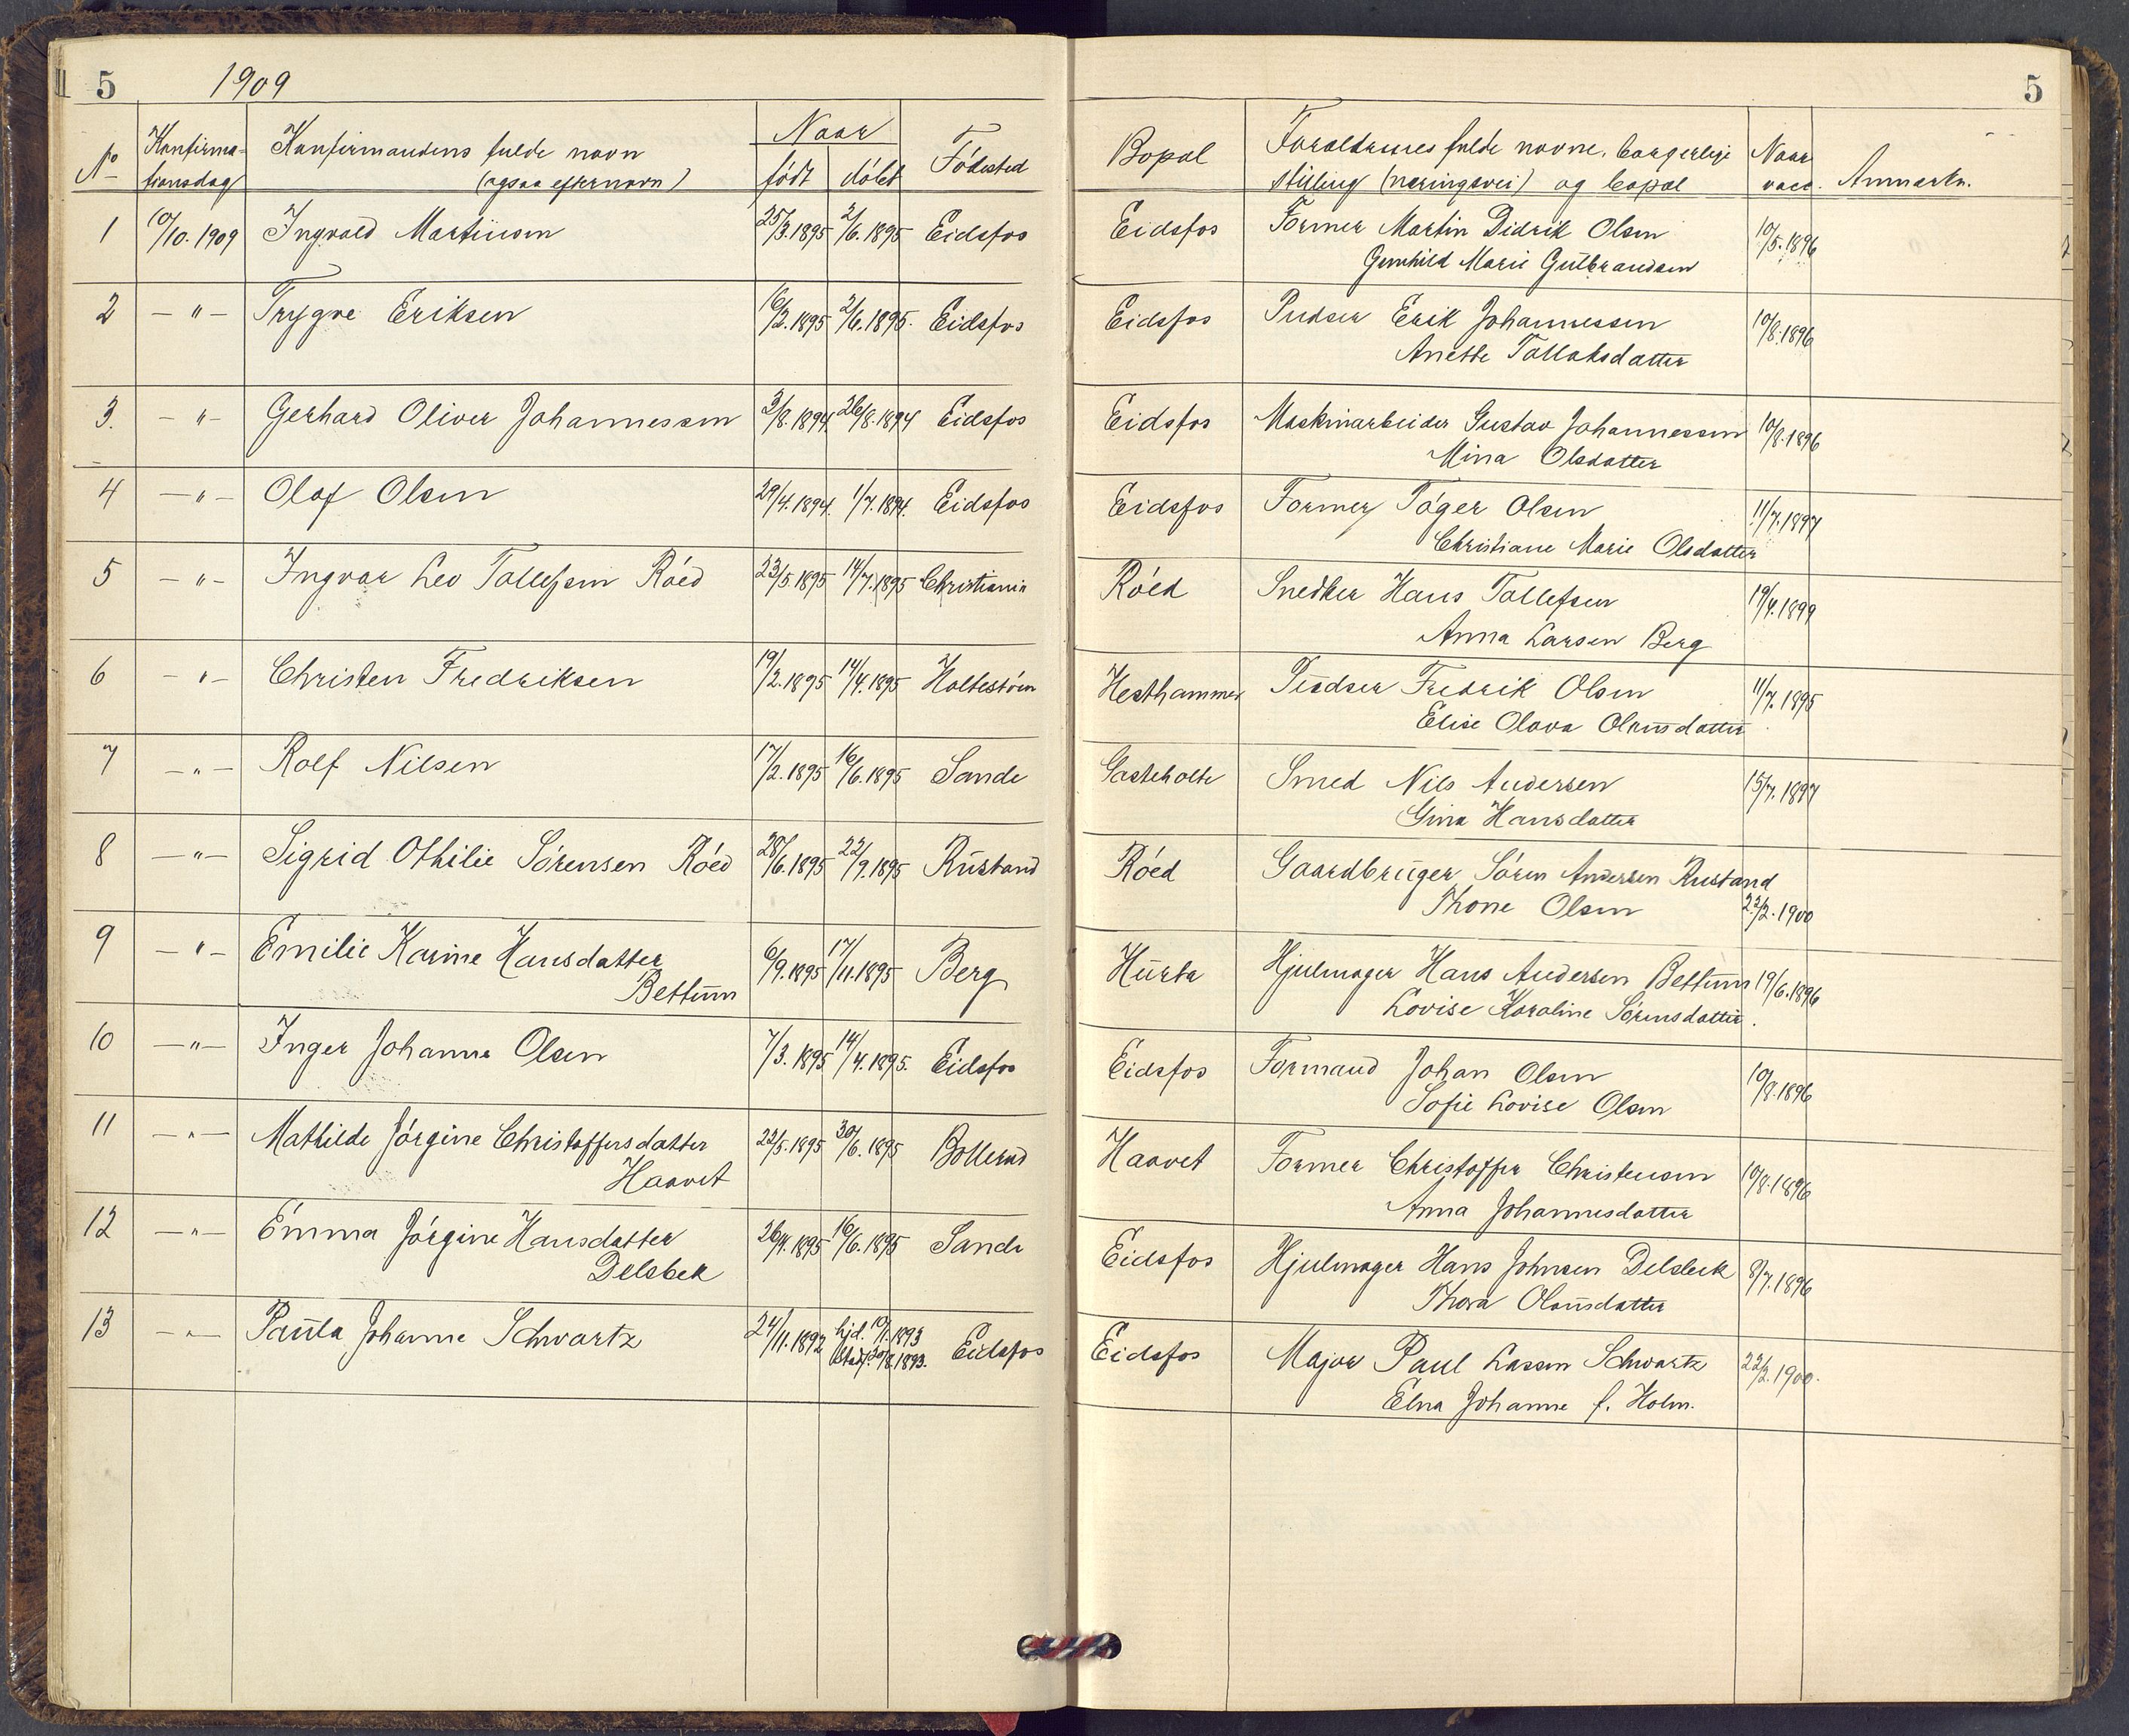 5 1909
No Konfirma- Konfirmandens fulde navn Naar Födested
tionsdag (ogsaa efternavn) född döbt
1 10/10. 1909 Ingvald Martinsen 25/3. 1895 2/6. 1895 Eidsfos
2 — " — Trygve Eriksen 16/2. 1895 2/6. 1895. Eidsfos
3. — " — Gerhard Oliver Johannessen 3/8. 1894 26/8. 1894 Eidsfos
4 — " — Olaf Olsen 29/4. 1894. 1/7. 1894. Eidsfos
5 — " — Ingvar Leo Tollefsen Róed 23/5 1895 14/7. 1895 Christiania
6 — " — Christen Fredriksen 19/2. 1895 14/4. 1895 Holtestóen
7 — " — Rolf Nilsen 17/2. 1895 16/6. 1895 Sande
8 — " — Sigrid Othilie Sórensen Róed 28/6. 1895 22/9. 1895 Rustand
9 — " — Emilie Karine Hansdatter 6/9. 1895 17/11. 1895 Berg
Bettum
10 — " — Inger Johanne Olsen 7/3. 1895 14/4. 1895. Eidsfos
11 — " — Mathilde Jórgine Christoffersdatter 22/5. 1895 30/6. 1895 Bollerud
Haavet
12 — " — Emma Jórgine Hansdatter 26/4. 1895 16/6. 1895 Sande
Delebek
13 — " — Paula Johanne Schwartz 24/11. 1892 hjd. 10/1. 1893 Eidsfos
Stadf. 20/8. 1893.
5
Bopæl Forældrenes fulde navne, borgerlige Naar
stilling (næringsvei) og bopæl vacc. Anmærkn.
Eidsfos Former Martin Didrik Olsen 10/5. 1896
Gunhild Marie Gulbrandsen
Eidsfos Pudser Erik Johannessen 10/8. 1896
Anette Tollaksdatter
Eidsfos Maskinarbeider Gustav Johannessen 10/8. 1896
Mina Olsdatter
Eidsfos Former Tóger Olsen 11/7. 1897
Christiane Marie Olsdatter
Róed Snedker Hans Tollefsen 19/4. 1899
Anna Larsen Berg
Hesthammer Pudser Fredrik Olsen 11/7. 1895
Elise Olava Olausdatter
Gasteholte Smed Nils Andersen 15/7. 1897
Gina Hansdatter
Róed Gaardbruger Sóren Andersen Rustand
Thone Olsen 22/2. 1900
Hurta Hjulmager Hans Andersen Bettum 19/6. 1896
Lovise Karoline Sórensdatter.
Eidsfos Formand Johan Olsen 10/8. 1896
Sofie Lovise Olsen
Haavet Former Christoffer Christensen 10/8. 1896
Anna Johannesdatter
Eidsfos Hjulmager Hans Johnsen Delebek 8/7. 1896
Thora Olausdatter
Eidsfos Major Paul Lassen Schwartz 22/2. 1900.
Elna Johanne f. Holm.